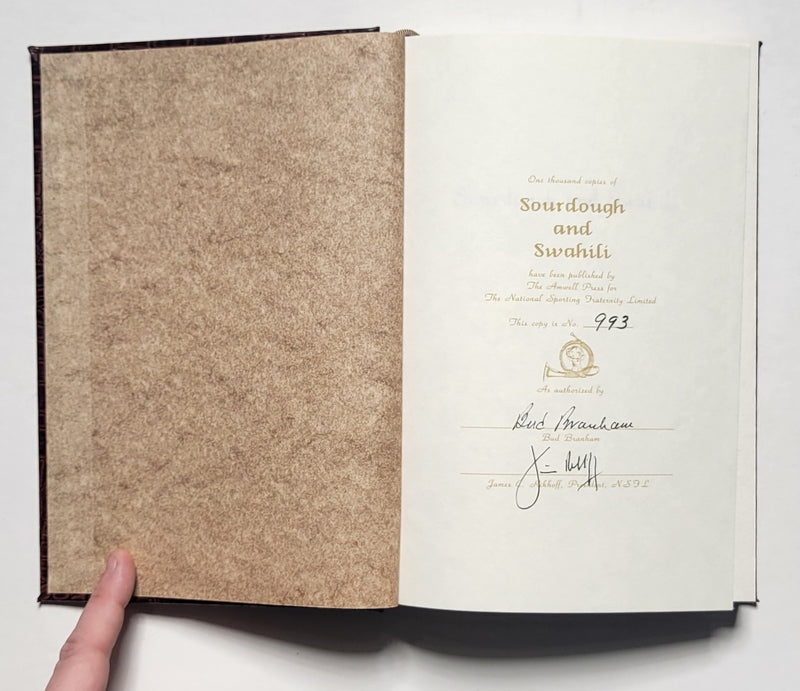 One thousand copies of
Sourdough
and
Swahili
have been published by
The Amwell Press for
The National Sporting Fraternity Limited
This copy is No. 993
As authorized by
Bud Branham
Bud Branham
James C. Rikhoff, President, N.S.F.L.